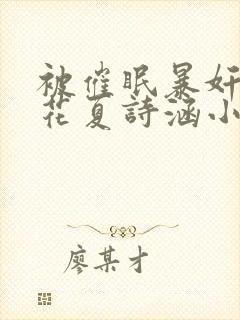 被催眠暴奸
花夏詩涵小
廖某才